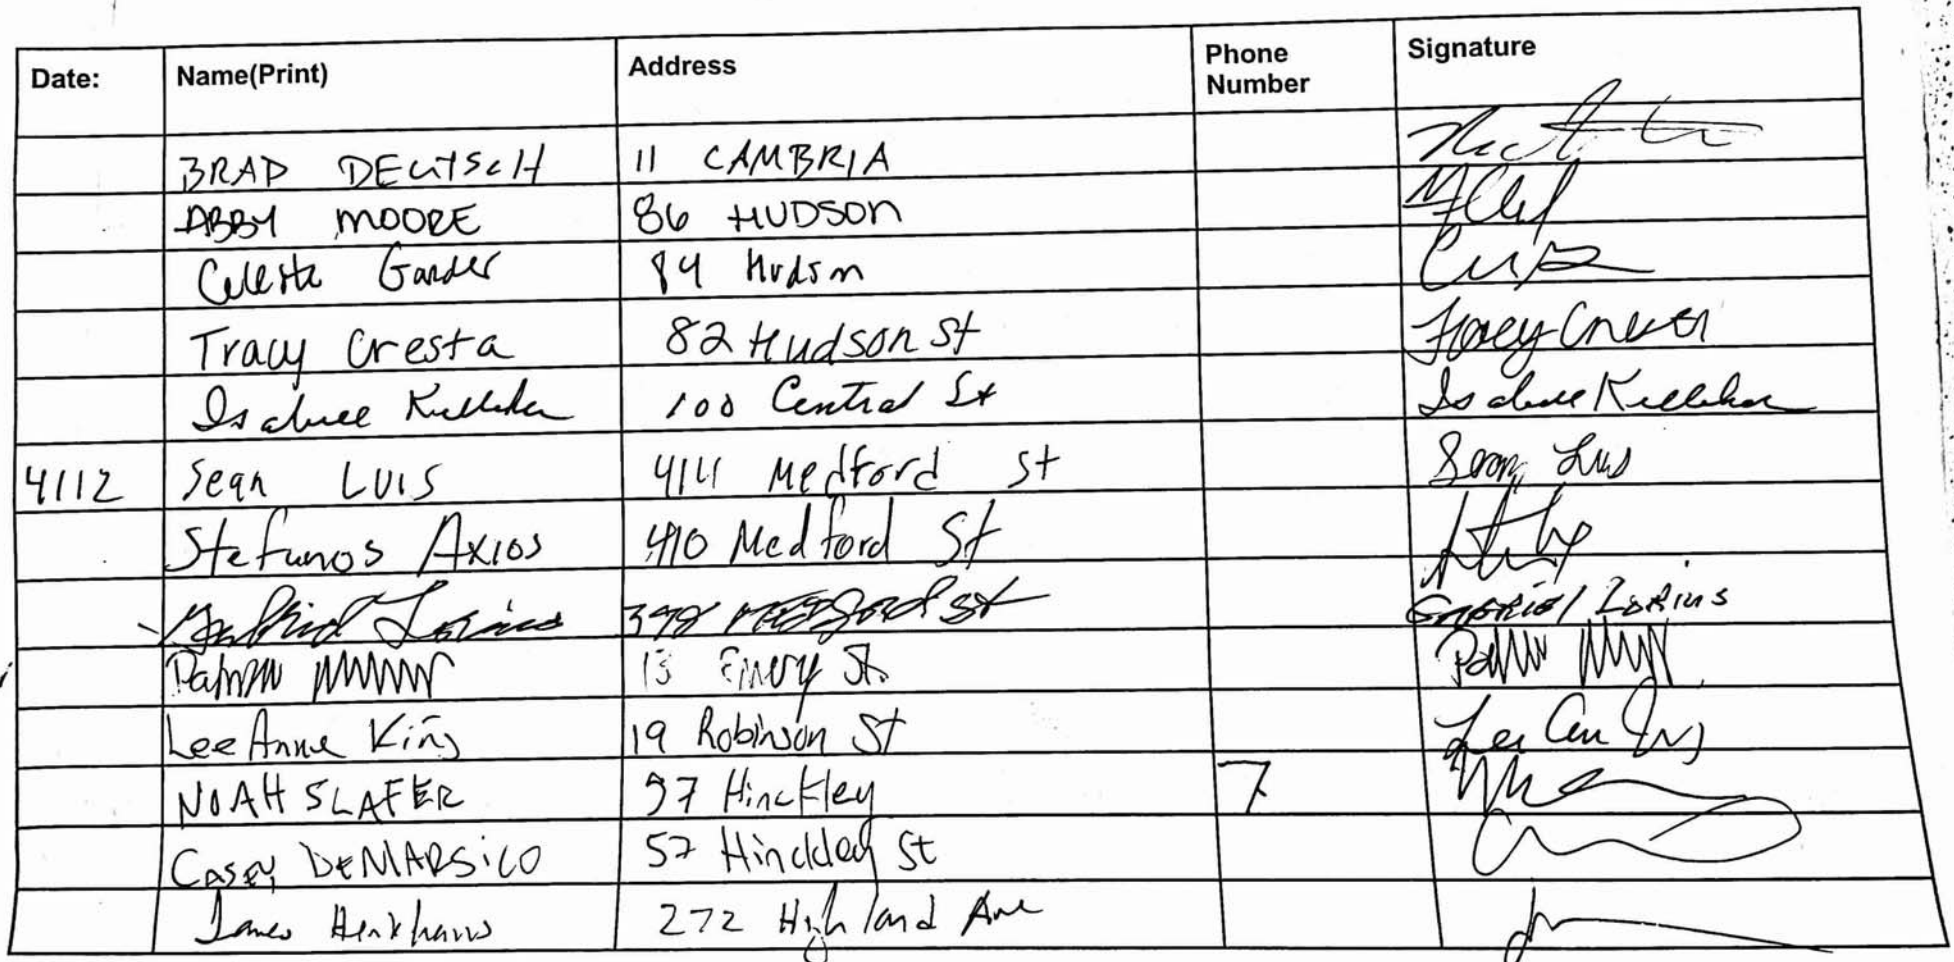 Date: Name(Print) Address Phone Number Signature
BRAD DEUTSCH 11 CAMBRIA
ABBY MOORE 86 HUDSON
Celeste Gander 84 Hudson
Tracy Cresta 82 Hudson St Tracy Cresta
Isabuee Kelleher 100 Central St Isabuee Kelleher
4/12 Sean LUIS 414 Medford St Sean Luis
Stefanos Axios 410 Medford St
Gabriel Lorius 398 Medford St Gabriel Lorius
13 Emery St.
LeeAnne King 19 Robinson St
NOAH SLAFER 57 Hinckley 7
CASEY DEMARSiCO 57 Hinckley St
James 272 Highland Ave